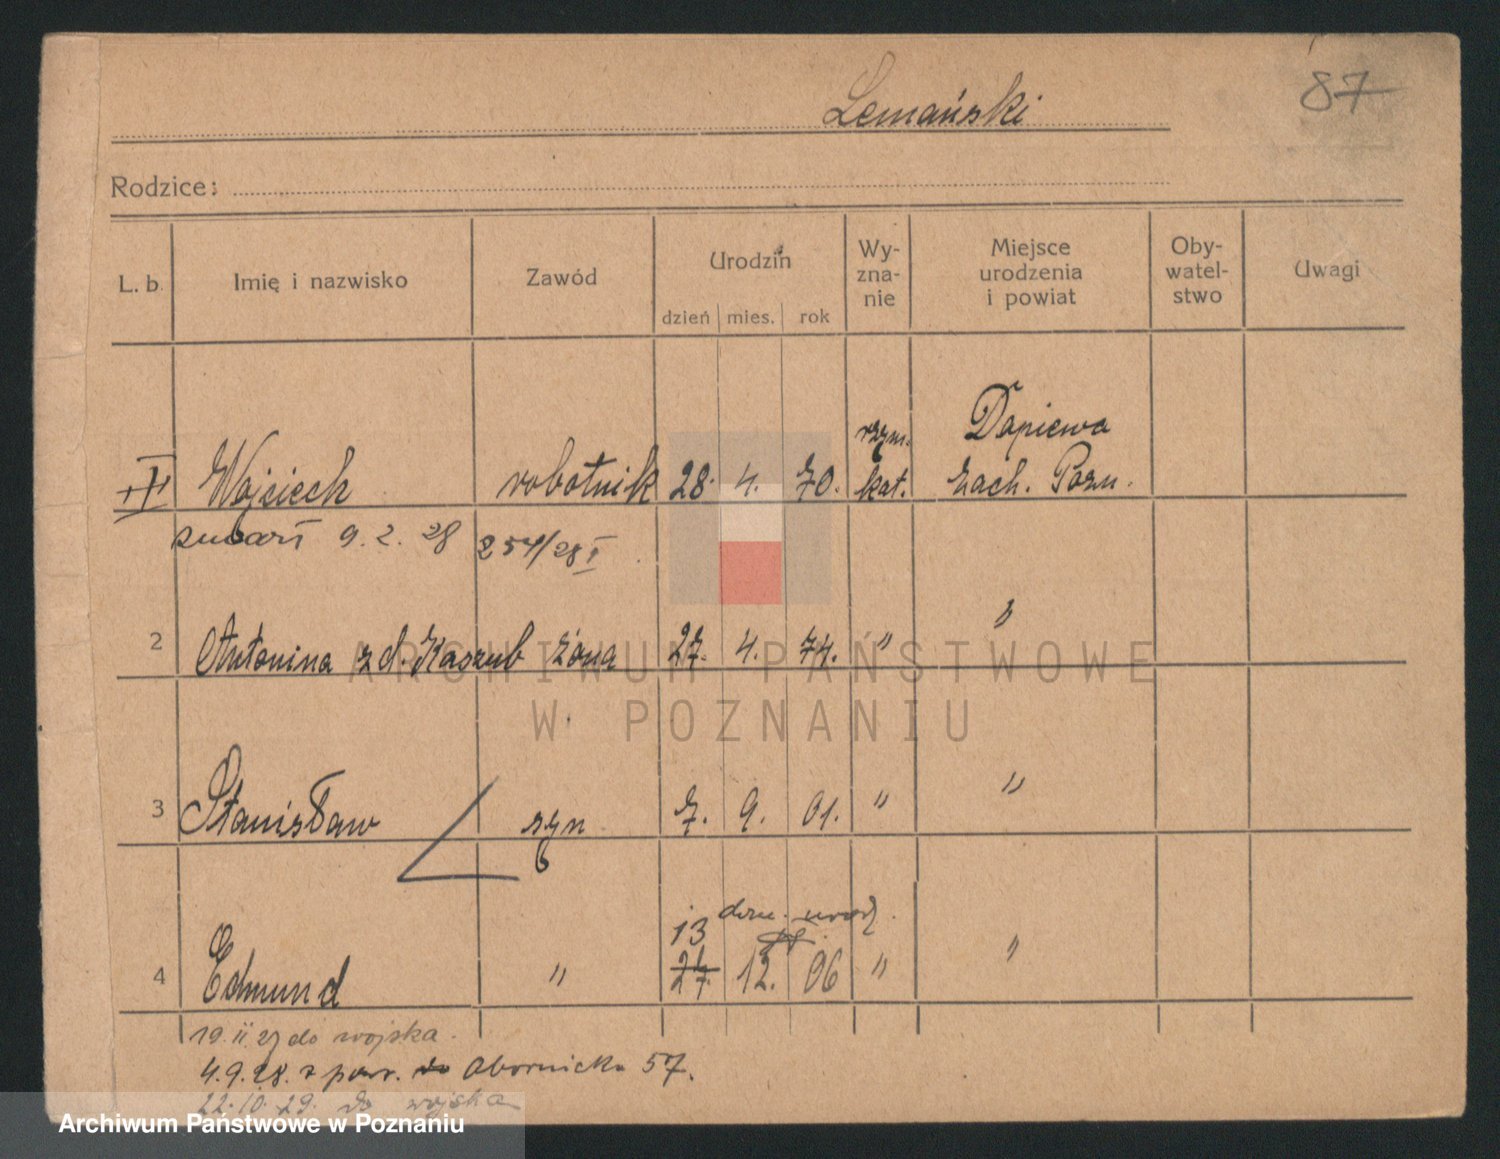 87
Lemański
Rodzice:
L. b. Imię i nazwisko Zawód Urodzin dzień mies. rok Wy-zna-nie Miejsce urodzenia i powiat Oby-watel-stwo Uwagi
Wojciech robotnik 28. 4. 70. rzym. kat. Dopiewa zach. Pozn.
zmarł 9. 2. 28 254/28 I
2 Antonina z d. Kaszub żona 27. 4. 74. " "
3 Stanisław syn 7. 9. 01. " "
13 urodz.
4 Edmund " 27. 12. 06 " "
19. II. 27 do wojska.
4. 9. 28. z pow. do Obornicka 57.
22. 10. 29. do wojska
ARCHIWUM PAŃSTWOWE
W POZNANIU
Archiwum Państwowe w Poznaniu